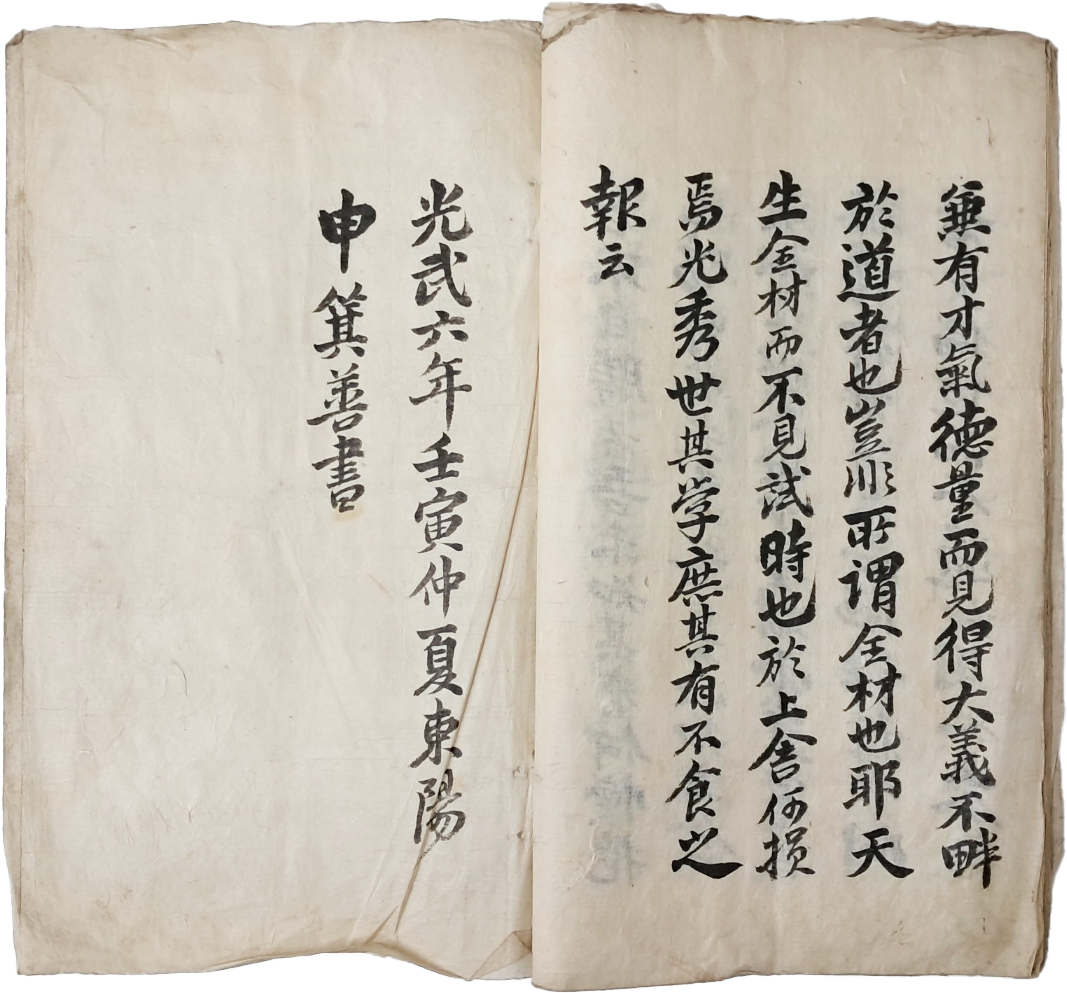 兼有才氣德量而見得大義不畔
於道者也豈非所謂全材也耶天
生全材而不見試時也於上舍何損
焉光秀世其学庶其有不食之
報云
光武六年壬寅仲夏東陽
申箕善書